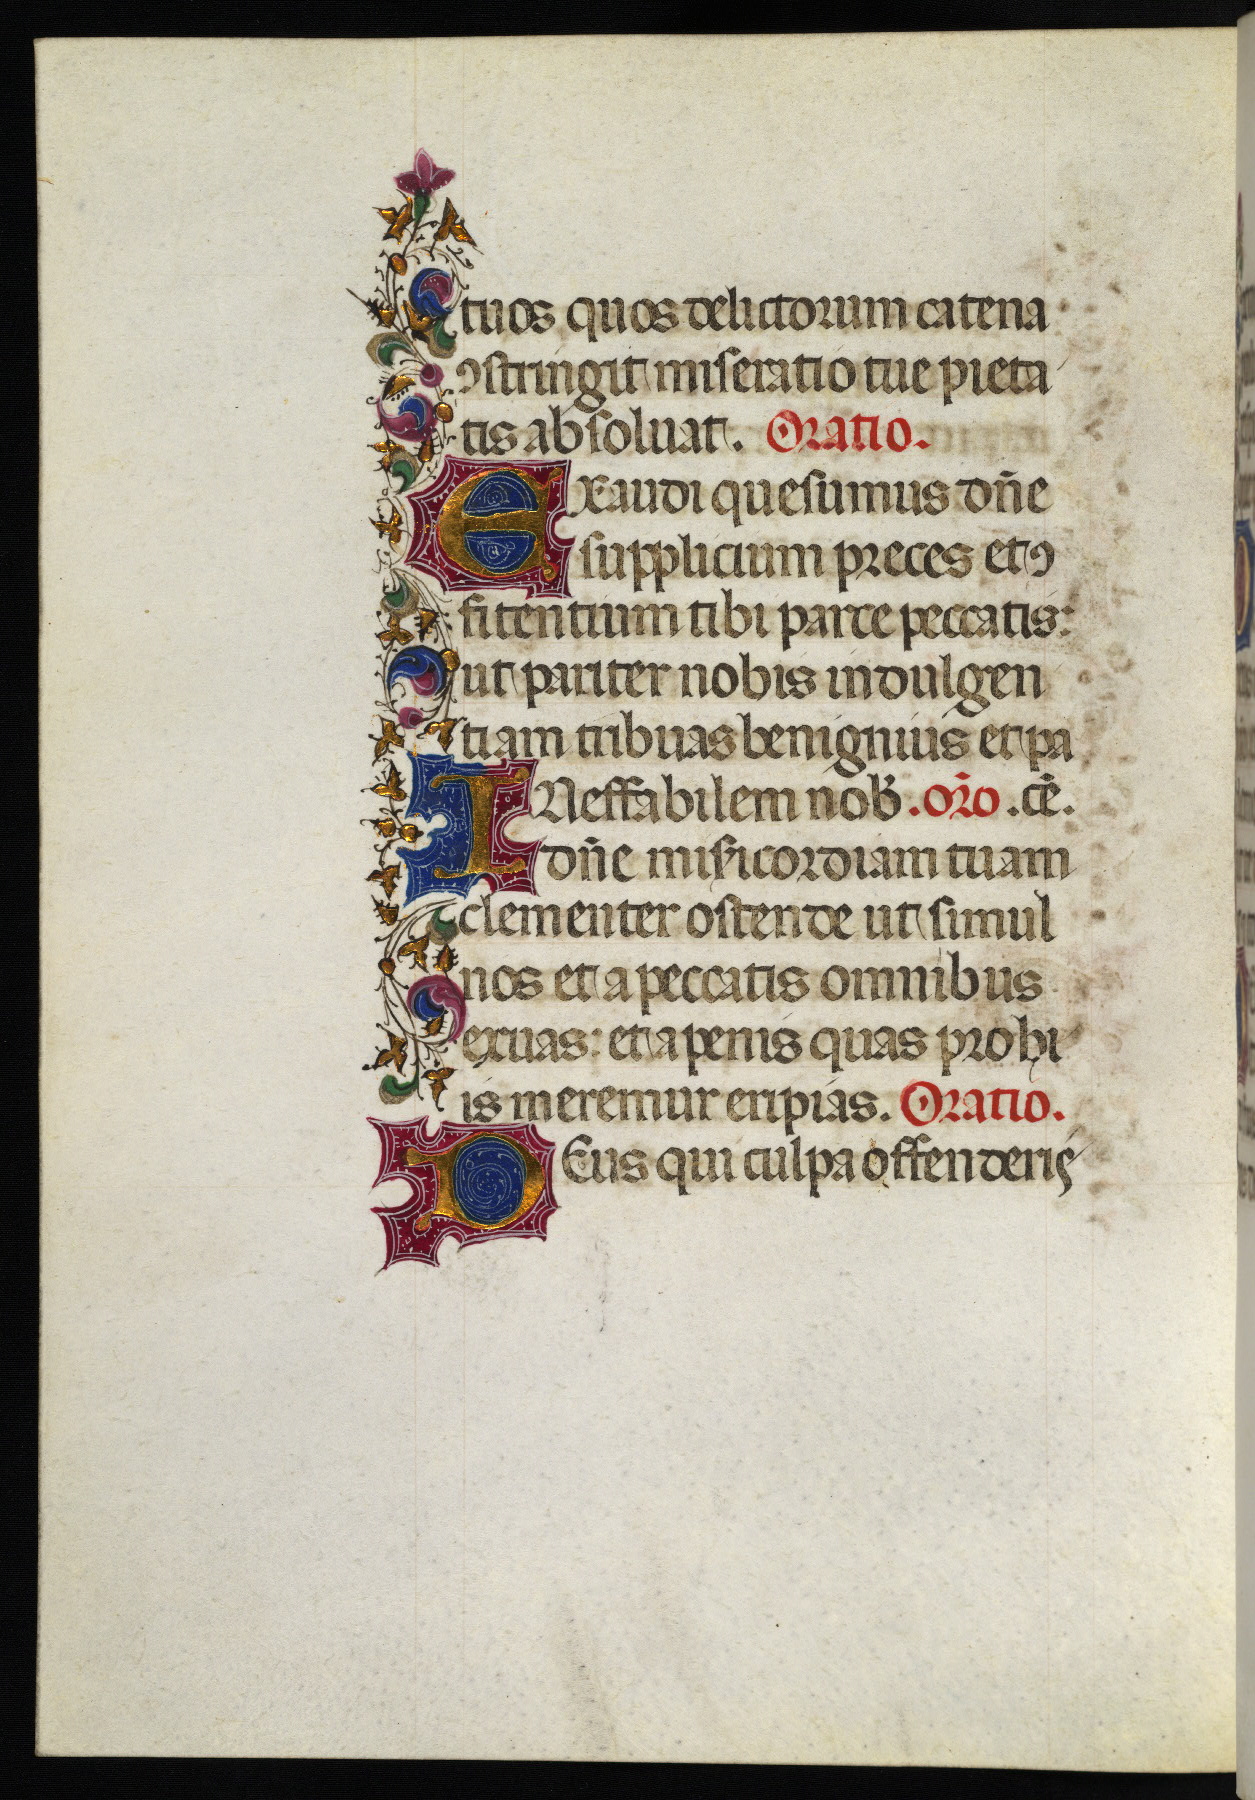 tuos quos delictorum catena
ꝯstringit miseratio tue pieta
tis absoluat. Oratio.
Exaudi quesumus dn̄e
supplicium preces et ꝯ
fitentium tibi parce peccatis:
ut pariter nobis indulgen
tiam tribuas benignius et pa
INeffabilem nob̄. or̄o. cē.
dn̄e mis̄icordiam tuam
clementer ostende ut simul
nos et a peccatis omnibus
exuas: et a penis quas pro hi
is meremur eripias. Oratio.
DEus qui culpa offenderis